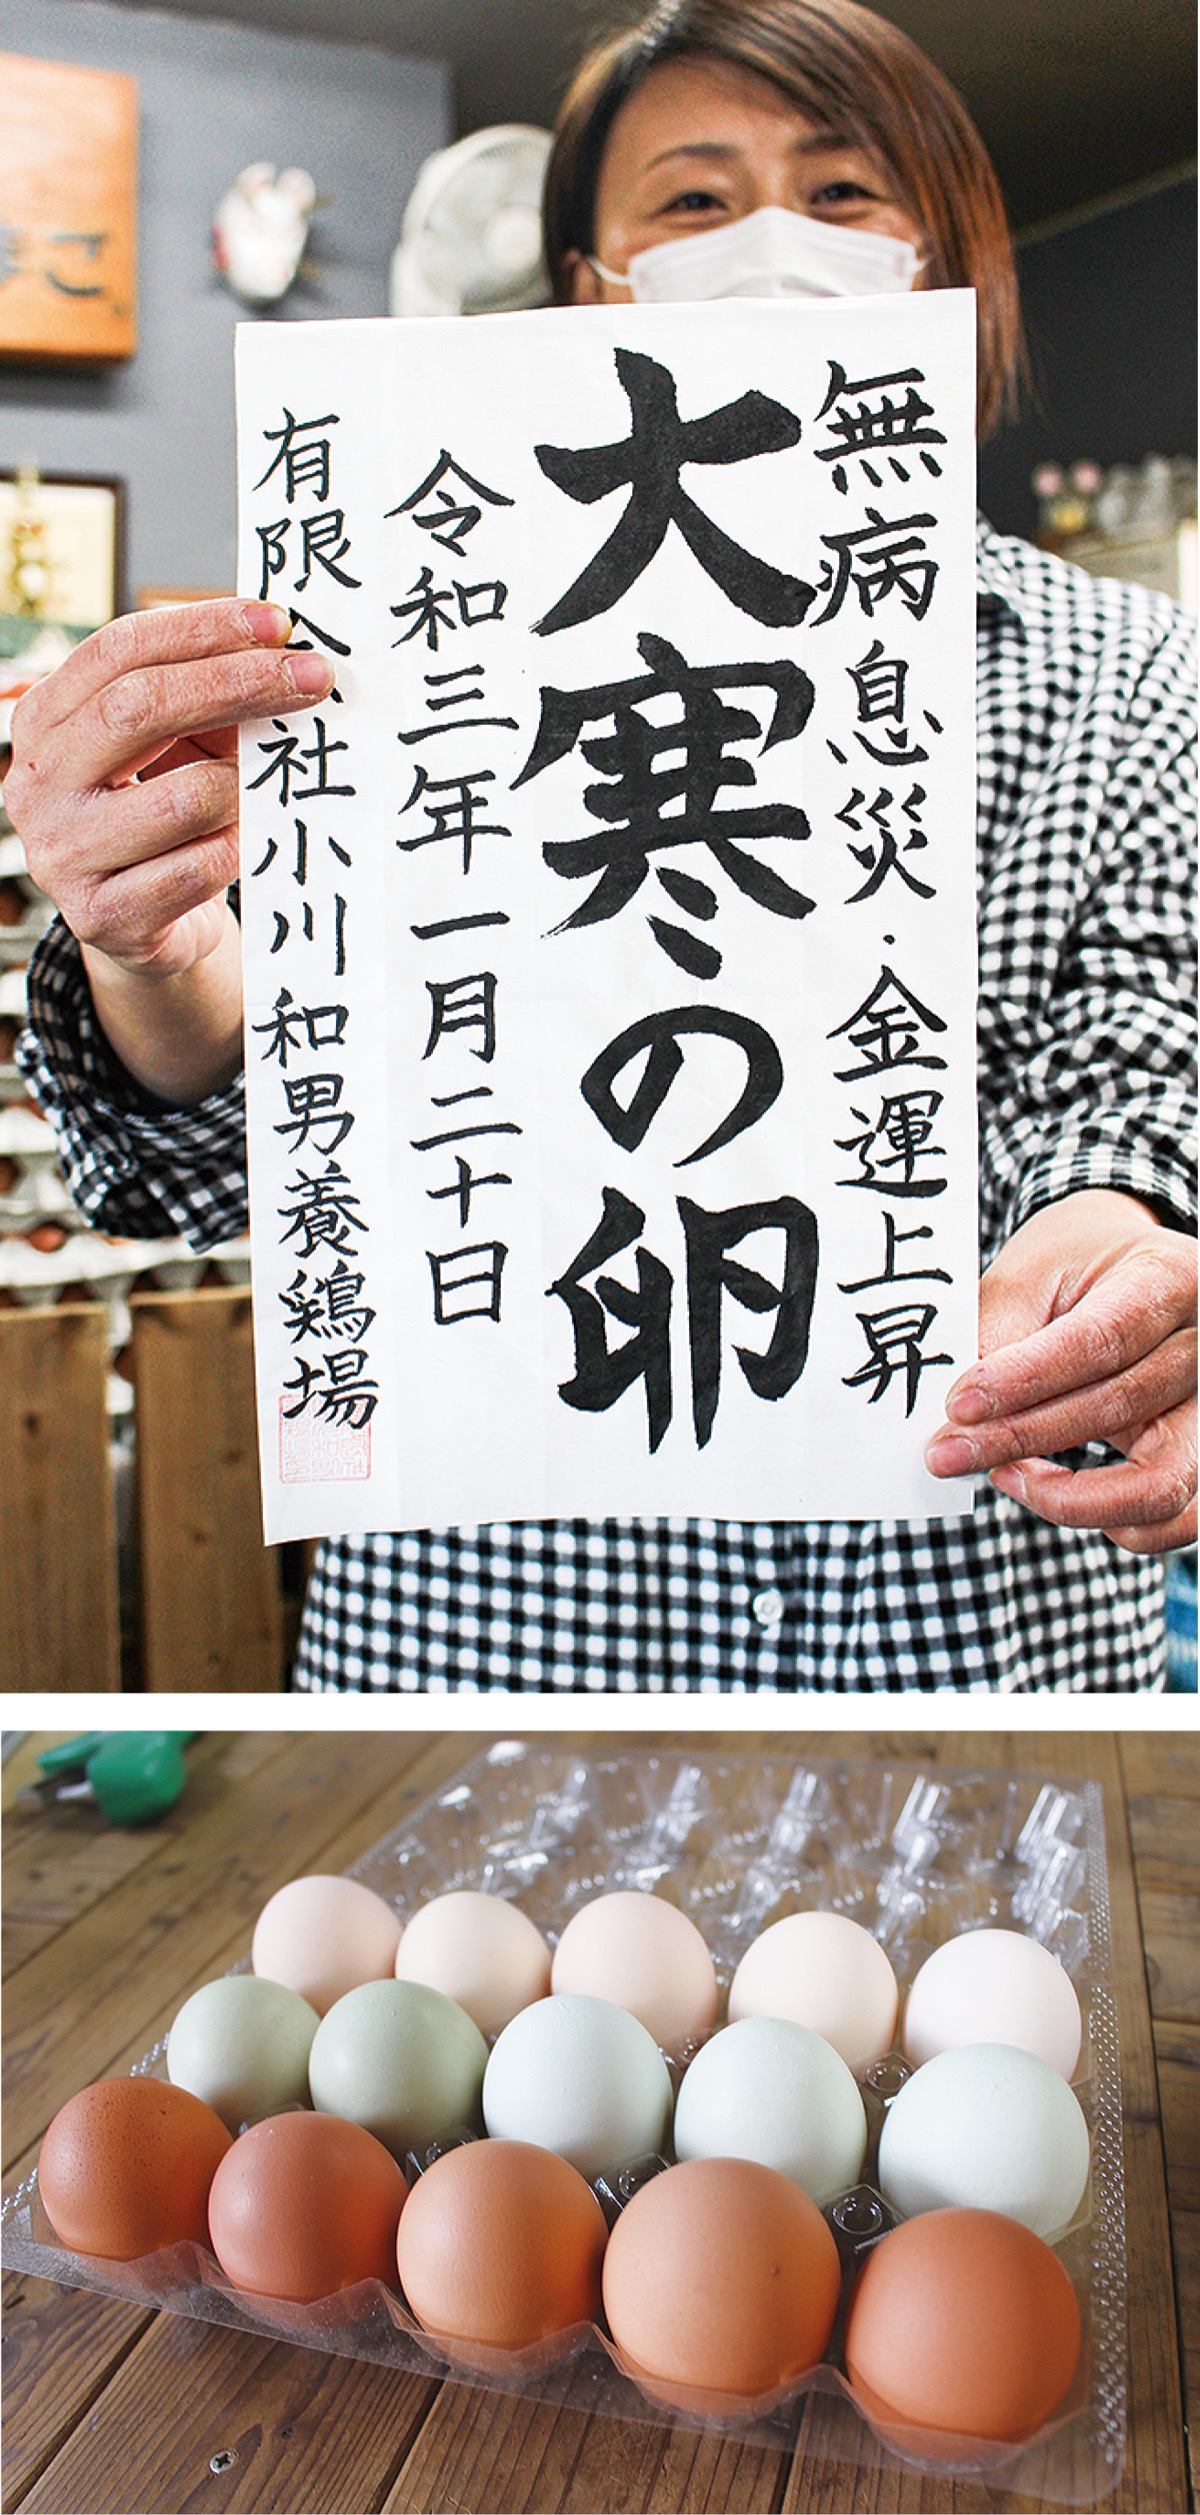 無病息災・金運上昇
大寒の卵
令和三年一月二十日
有限会社小川和男養鶏場